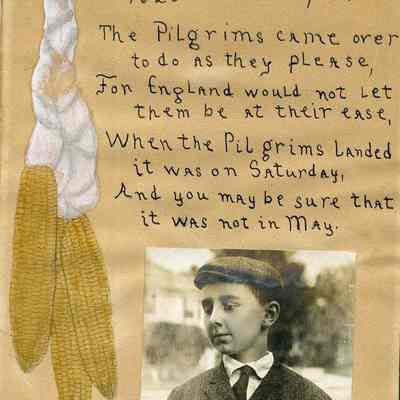 The Pilgrims came over
to do as they please,
For England would not let
them be at their ease,
When the Pilgrims landed
it was on Saturday,
And you may be sure that
it was not in May.